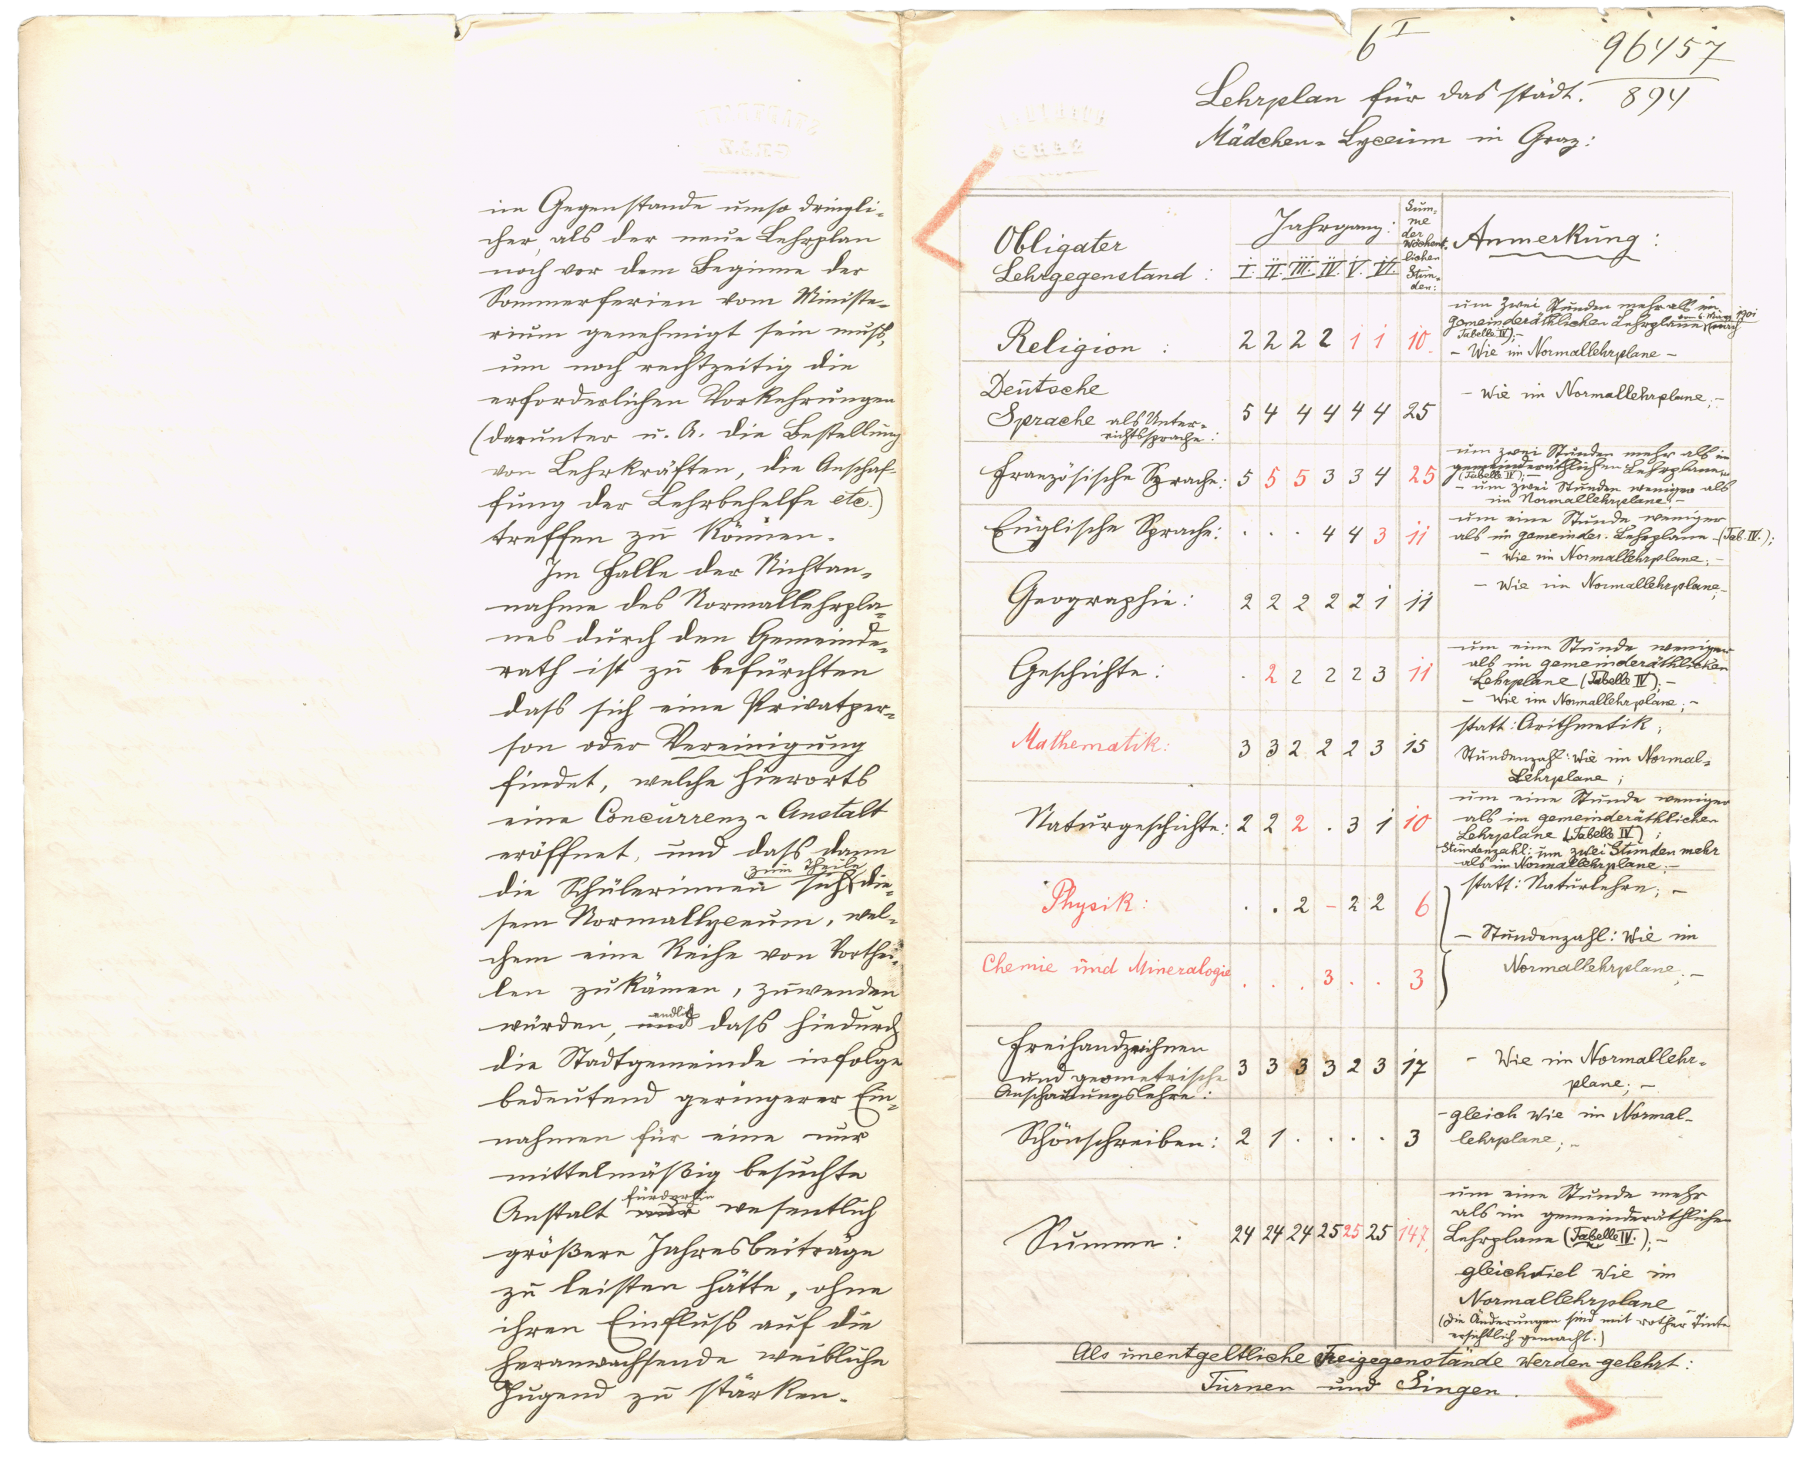 im Gegenstande umso dringli-
cher, als der neue Lehrplan
noch vor dem Beginne der
Sommerferien vom Ministe-
rium genehmigt sein muß,
um noch rechtzeitig die
erforderlichen Vorkehrungen
(darunter u. A. die Bestellung
von Lehrkräften, die Anschaf-
fung der Lehrbehelfe etc.)
treffen zu können.
Im Falle der Nichtan-
nahme des Normallehrpla-
nes durch den Gemeinde-
rath ist zu befürchten
dass sich eine Privatper-
son oder Vereinigung
findet, welche hierorts
eine Concurrenz-Anstalt
eröffnet, und dass dann
zum Theile
die Schülerinnen sich die-
sem Normallyceum, wel-
chem eine Reihe von Vorthei-
len zukämen, zuwenden
endlich
würden, und dass hiedurch
die Stadtgemeinde infolge
bedeutend geringerer Ein-
nahmen für eine nur
mittelmäßig besuchte
fürderhin
Anstalt nur wesentlich
größere Jahresbeiträge
zu leisten hätte, ohne
ihren Einfluss auf die
heranwachsende weibliche
Jugend zu stärken.
6 I
96457
894
Lehrplan für das städt.
Mädchen-Lyceum in Graz:
Obligater Lehrgegenstand : Jahrgang: I. II. III. IV. V. VI. Summe der wöchentlichen Stunden: Anmerkung :
Religion : 2 2 2 2 1 1 10
um zwei Stunden mehr als im
gemeinderäthlichen Lehrplane vom 6. März 1901
(Tabelle IV);
- Wie im Normallehrplane -
Deutsche
Sprache als Unter-
richtssprache: 5 4 4 4 4 4 25 - Wie im Normallehrplane; -
Französische Sprache: 5 5 5 3 3 4 25
um zwei Stunden mehr als im
gemeinderäthlichen Lehrplane
(Tabelle IV); -
- um zwei Stunden weniger als
im Normallehrplane; -
Englische Sprache: . . . 4 4 3 11
um eine Stunde weniger
als im gemeinder. Lehrplane (Tab. IV.);
- Wie im Normallehrplane; -
Geographie: 2 2 2 2 2 1 11 - Wie im Normallehrplane; -
Geschichte: . 2 2 2 2 3 11
um eine Stunde weniger
als im gemeinderäthlichen
Lehrplane (Tabelle IV); -
- Wie im Normallehrplane; -
Mathematik: 3 3 2 2 2 3 15
statt: Arithmetik;
Stundenzahl: Wie im Normal-
Lehrplane;
Naturgeschichte: 2 2 2 . 3 1 10
um eine Stunde weniger
als im gemeinderäthlichen
Lehrplane (Tabelle IV);
Stundenzahl: um zwei Stunden mehr
als im Normallehrplane; -
Physik: . . 2 - 2 2 6
statt: Naturlehre; -
- Stundenzahl: Wie im
Chemie und Mineralogie . . . 3 . . 3
Normallehrplane; -
Freihandzeichnen
und geometrische
Anschauungslehre: 3 3 3 3 2 3 17
- Wie im Normallehr-
plane; -
Schönschreiben: 2 1 . . . . 3
- gleich wie im Normal-
lehrplane; -
Summe: 24 24 24 25 25 25 147
um eine Stunde mehr
als im gemeinderäthlichen
Lehrplane (Tabelle IV.); -
gleichviel wie im
Normallehrplane
(die Änderungen sind mit rother Tinte
ersichtlich gemacht.)
Als unentgeltliche Freigegenstände werden gelehrt:
Turnen und Singen.